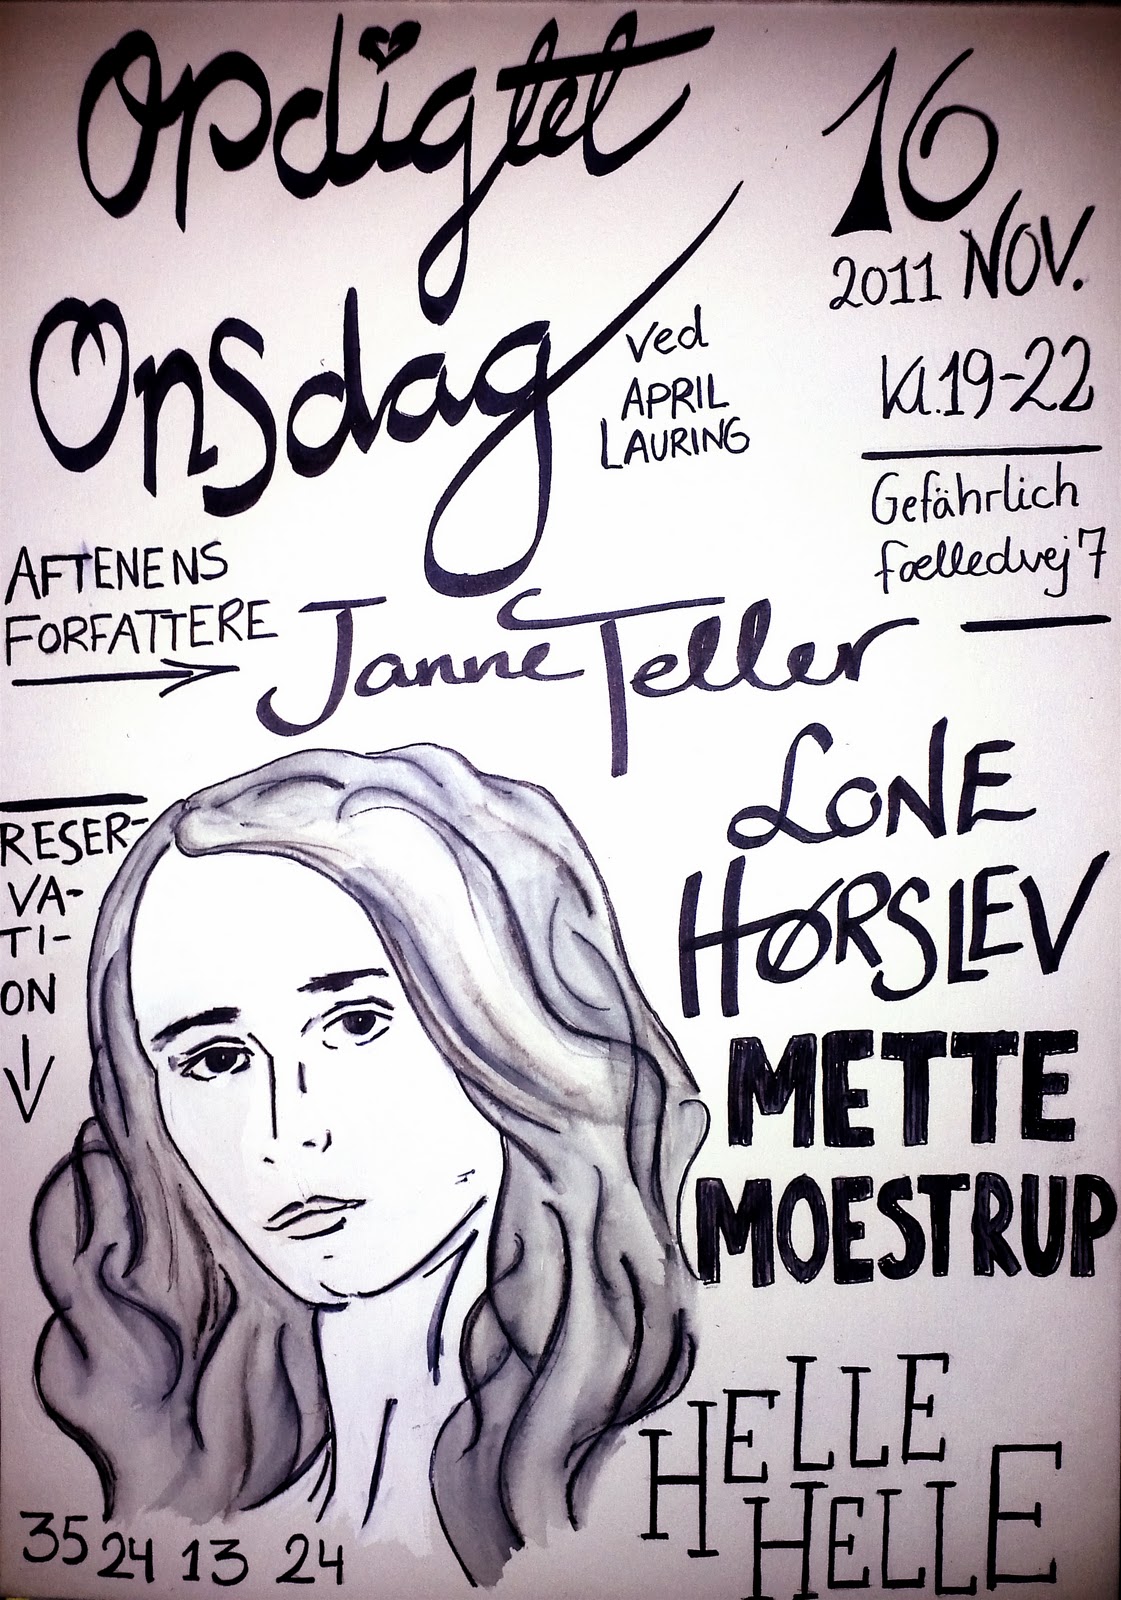 Opdigtet
Onsdag
ved
APRIL
LAURING
16
2011 NOV.
Kl.19-22
Gefährlich
fælledvej 7
AFTENENS
FORFATTERE
Janne Teller
LONE
HØRSLEV
METTE
MOESTRUP
HELLE
HELLE
RESER-
VA-
TI-
ON
35 24 13 24